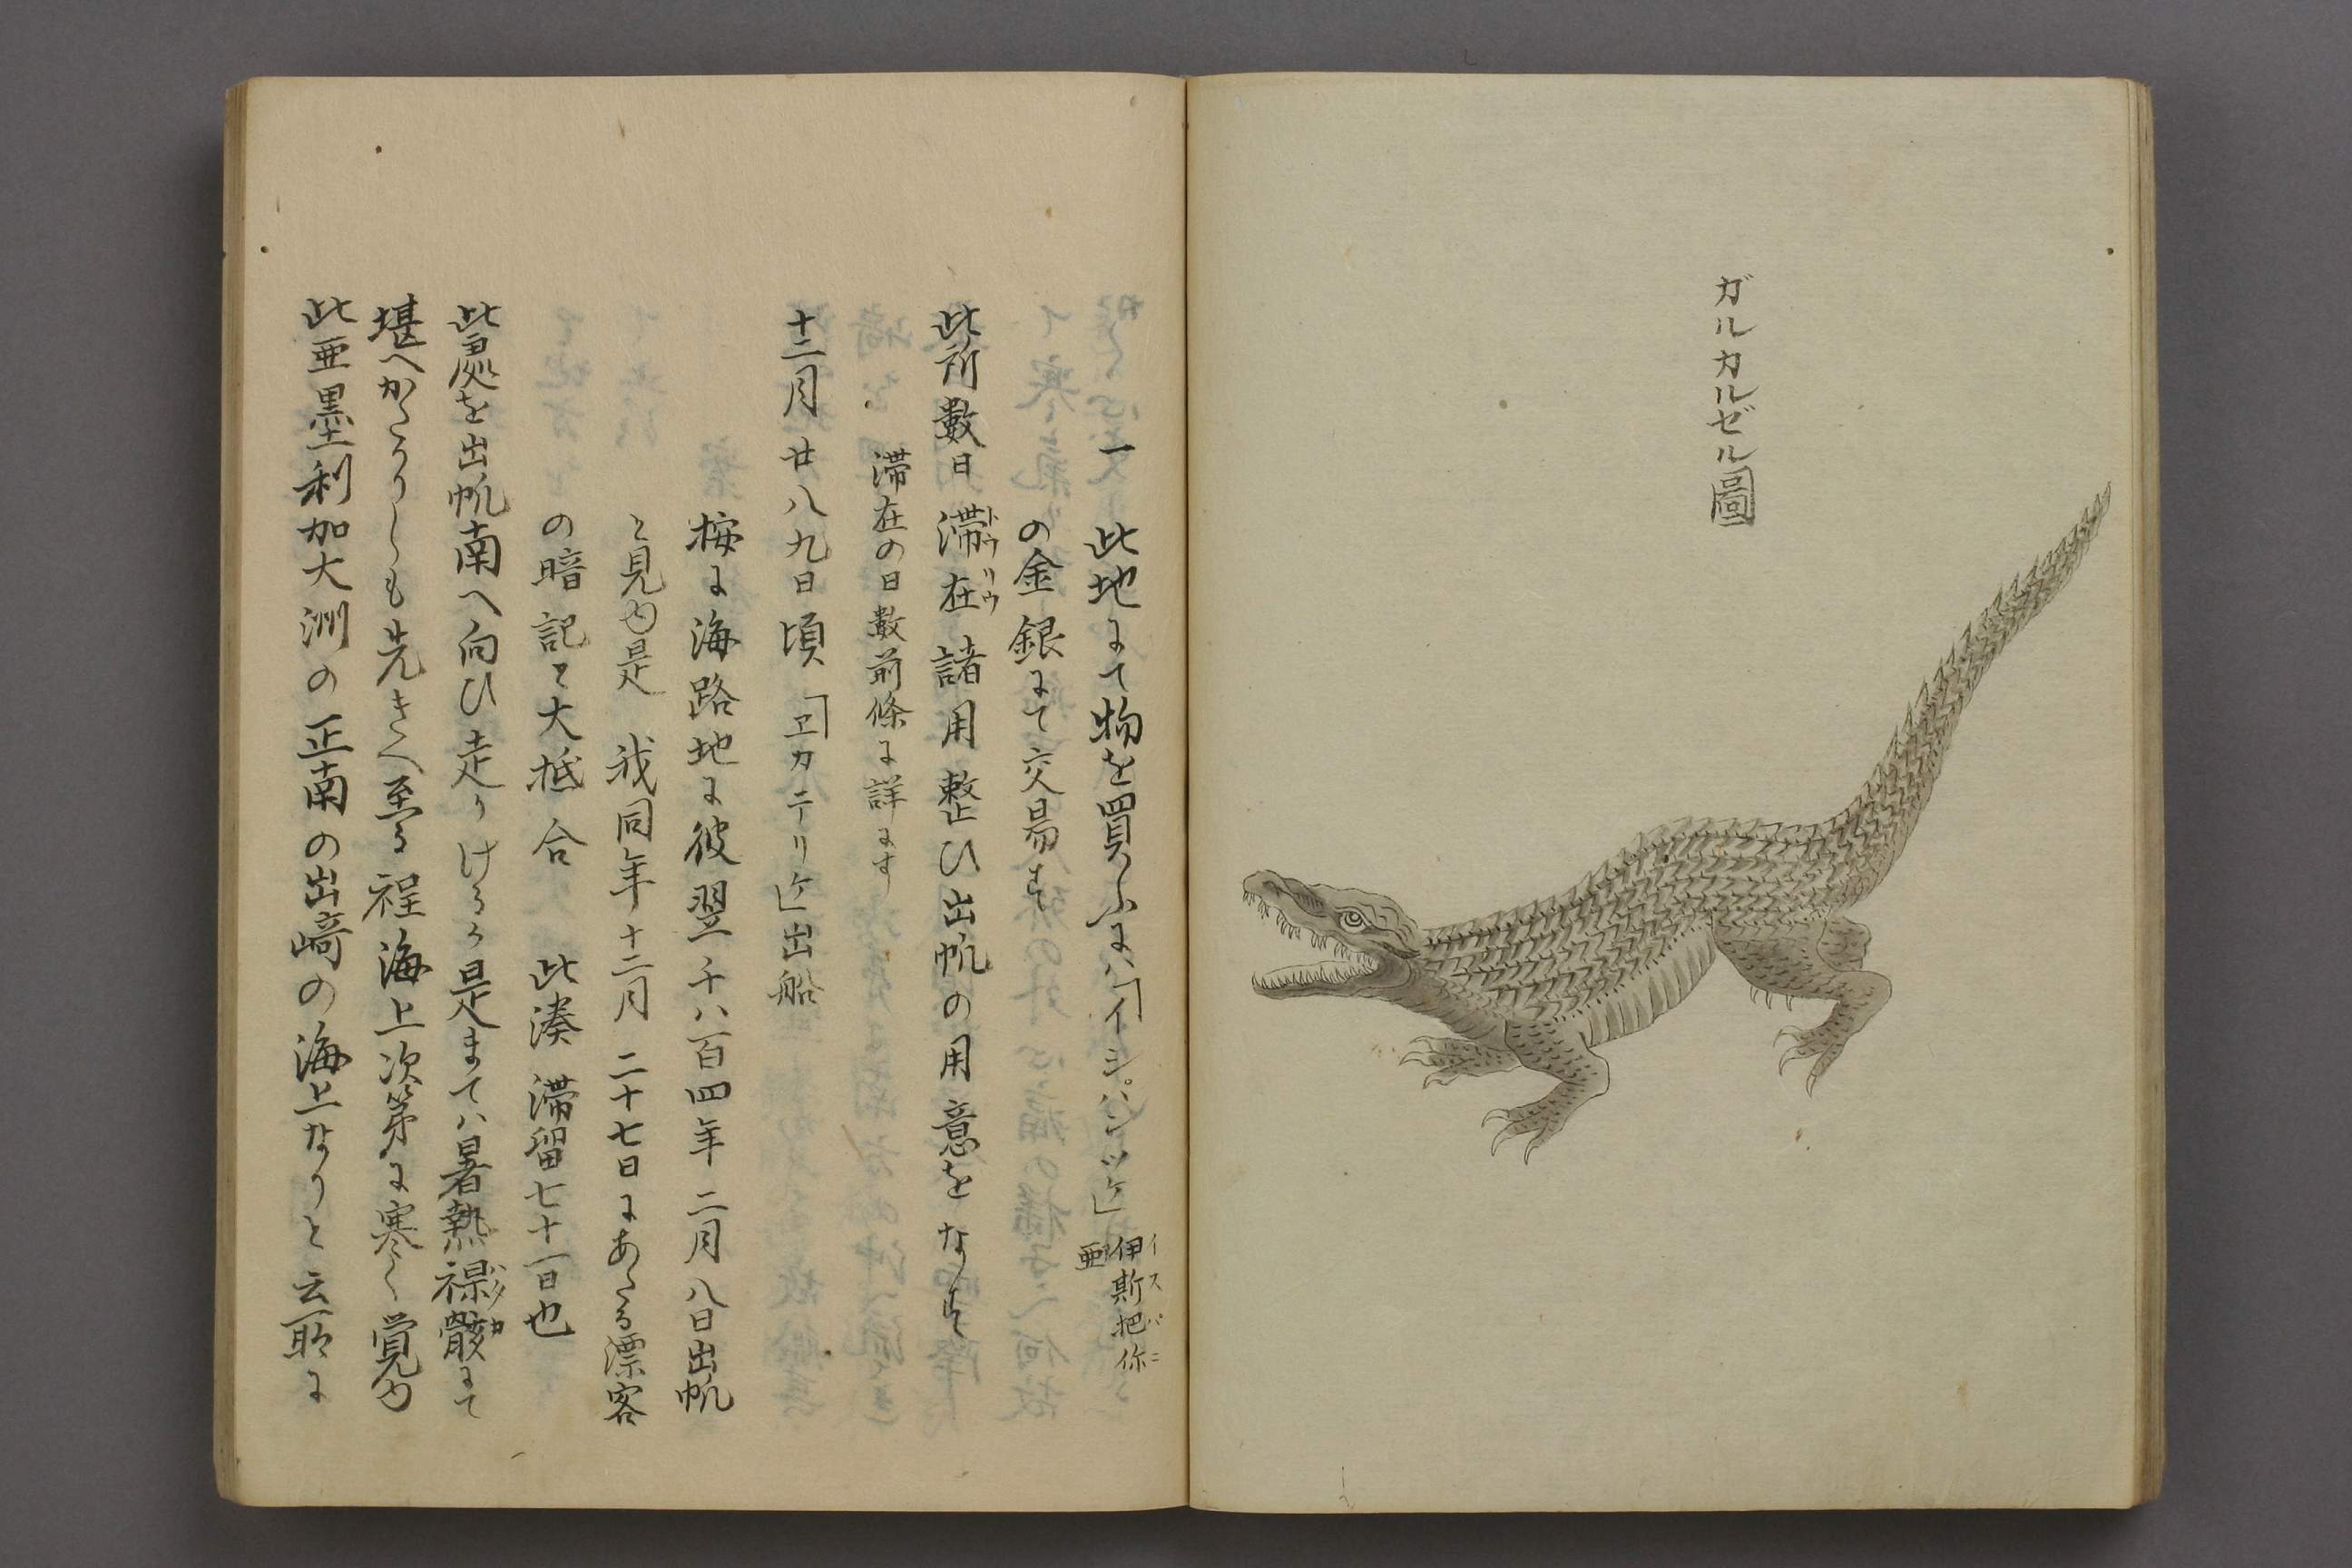 ガルカルゼル圖
一 此地にて物を買ふには「イシパンツケ」伊斯把你亜
イスパニ
の金銀にて交易す
此所數日滞在諸用整ひ出帆の用意をなす
トウリウ
滞在の日數前條に詳ます
十二月廿八九日頃「ヱカテリケ」出船
按に海路地に彼翌千八百四年二月八日出帆
と見ゆ是我同年十二月二十七日にあたる漂客
の暗記と大抵合 此湊滞留七十一日也
此處を出帆南へ向ひ走りけるか是まては暑熱裸骸にて
ハタカ
堪へかたかりしも先きへ至る程海上次第に寒く覚ゆ
此亜墨利加大洲の正南の出﨑の海上なりと云所に